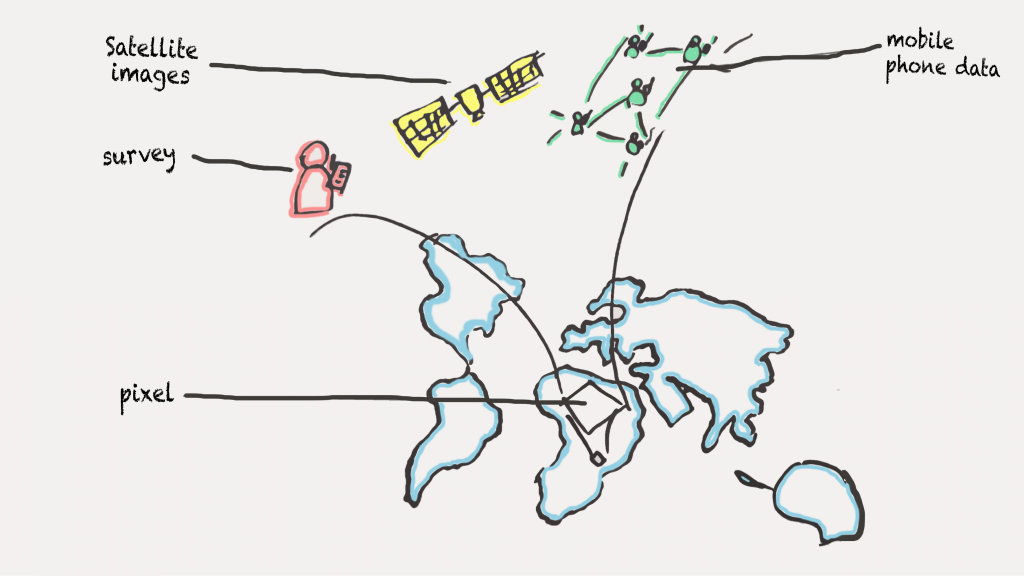 Satellite
images
mobile
phone data
survey
pixel